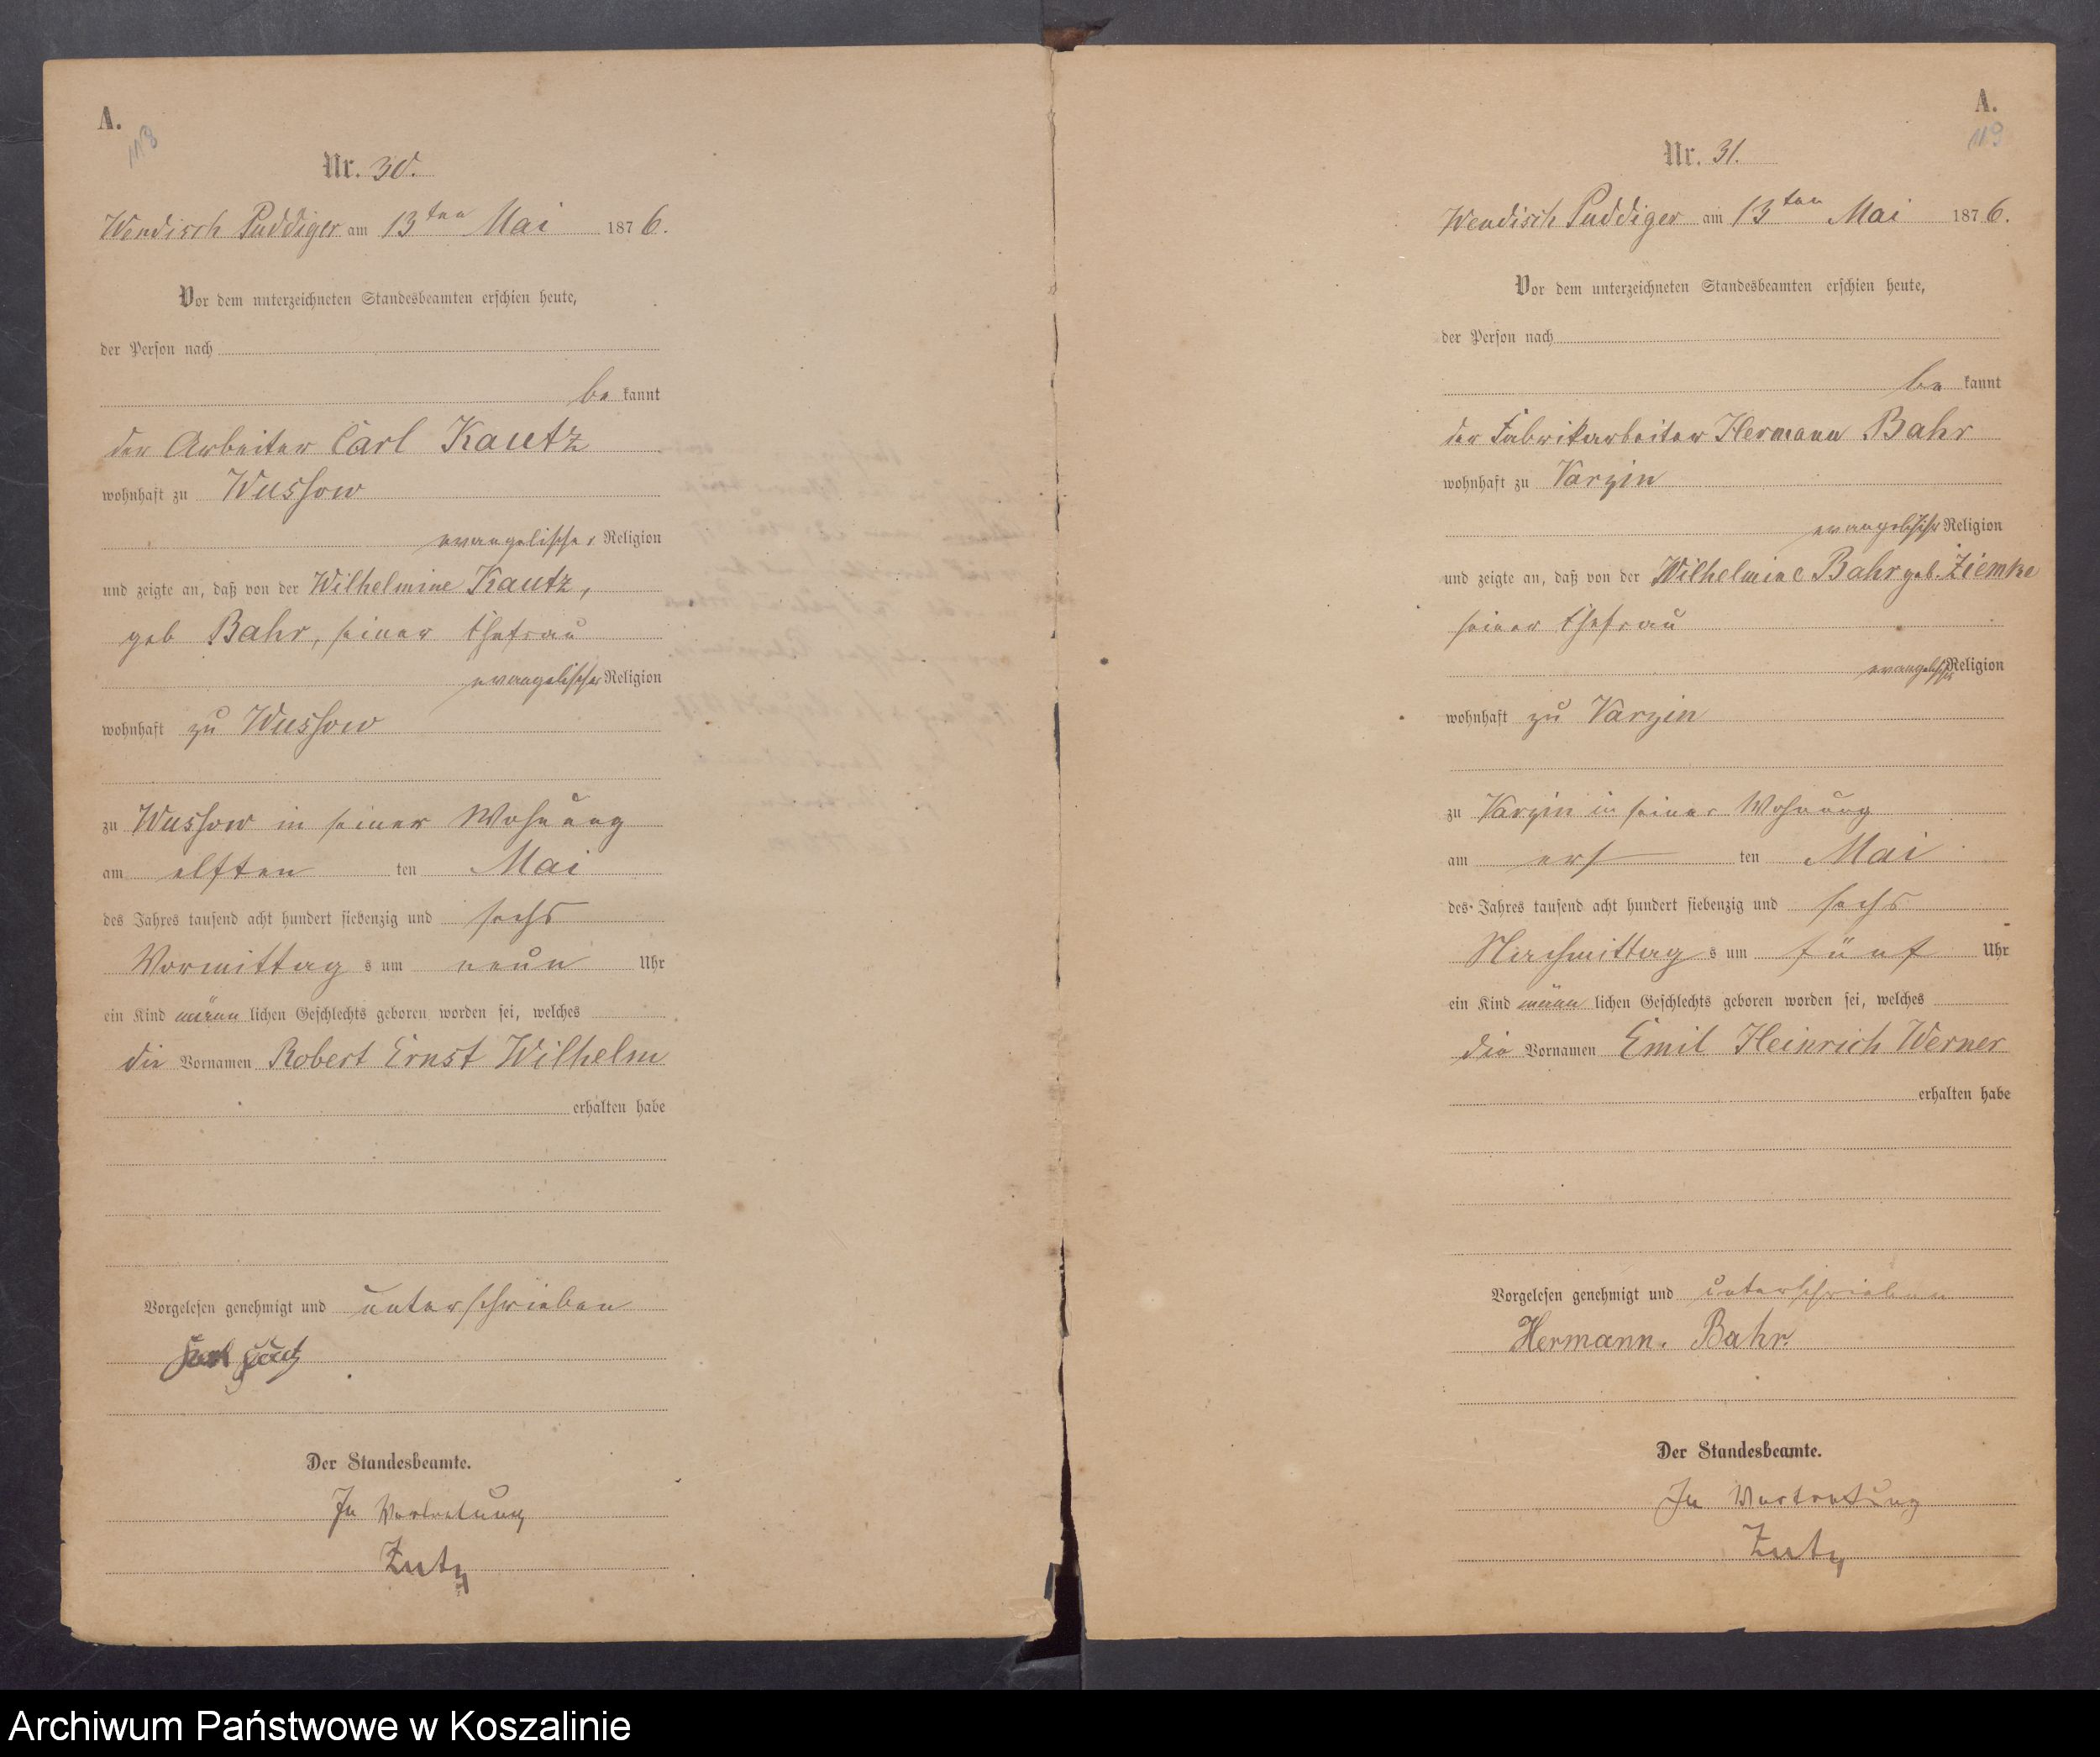 A.
113
Nr. 30.
Wendisch Puddiger am 13ten Mai 1876.
Vor dem unterzeichneten Standesbeamten erschien heute,
der Person nach
be kannt
der Arbeiter Carl Kautz
wohnhaft zu Wussow
evangelischer Religion
und zeigte an, daß von der Wilhelmine Kautz,
geb Bahr, seiner Ehefrau
evangelischer Religion
wohnhaft zu Wussow
zu Wussow in seiner Wohnung
am elften ten Mai
des Jahres tausend acht hundert siebenzig und sechs
Vormittag s um neun Uhr
ein Kind männ lichen Geschlechts geboren worden sei, welches
die Vornamen Robert Ernst Wilhelm
erhalten habe
Vorgelesen genehmigt und unterschrieben
Der Standesbeamte.
In Vertretung
Zutz
A.
Nr. 31.
Wendisch Puddiger am 13ten Mai 1876.
Vor dem unterzeichneten Standesbeamten erschien heute,
der Person nach
be kannt
der Fabrikarbeiter Hermann Bahr
wohnhaft zu Varzin
evangelischer Religion
und zeigte an, daß von der Wilhelmine Bahr geb. Ziemke
seiner Ehefrau
evangelischer Religion
wohnhaft zu Varzin
zu Varzin in seiner Wohnung
am ers ten Mai
des Jahres tausend acht hundert siebenzig und sechs
Nachmittag s um fünf Uhr
ein Kind männ lichen Geschlechts geboren worden sei, welches
die Vornamen Emil Heinrich Werner
erhalten habe
Vorgelesen genehmigt und unterschrieben
Hermann. Bahr.
Der Standesbeamte.
In Vertretung
Zutz
Archiwum Państwowe w Koszalinie